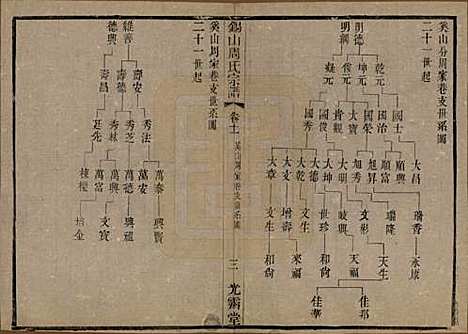 奚山分周家巷支世系圖
二十一世起
明德
明綱
乾元
復元
坤元
國士
國治
國榮
大寶
肯觀
國俊
國秀
大昌
順興
順富
旭昇
旭秀
大明
大坤
大德
大乾
大文
大章
瑞香
瑞隆
文彬
啟興
世珍
增壽
文生
永康
天生
天福
和尚
來福
和尚
佳邦
佳華
錫山周氏宗譜
卷十
奚山周家巷支世系圖
三
光霽堂
奚山周家巷支世系圖
二十一世起
維善
德興
壽安
壽德
壽昌
秀法
秀芝
秀林
廷先
萬泰
萬安
萬德
萬興
萬富
興賢
興福
文寶
培金